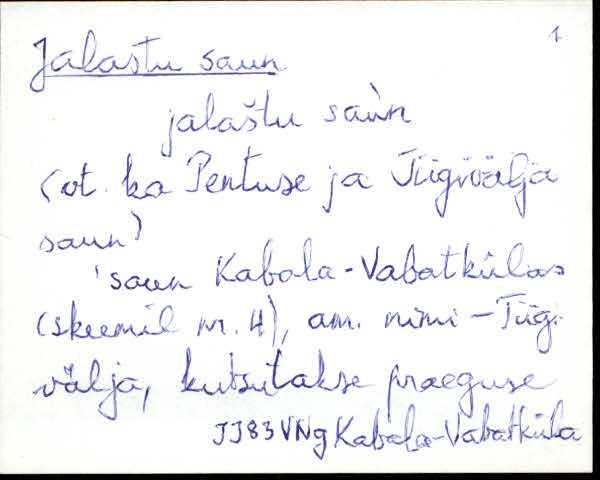 1
Jalastu saun
jalaštu saùn
(vt. ka Pentuse ja Tiigivälja
saun)
'saun Kabala-Vabatkülas
(skeemil nr. 4), am. nimi – Tiigi-
välja, kutsutakse praeguse
JJ83VNgKabala-Vabatküla